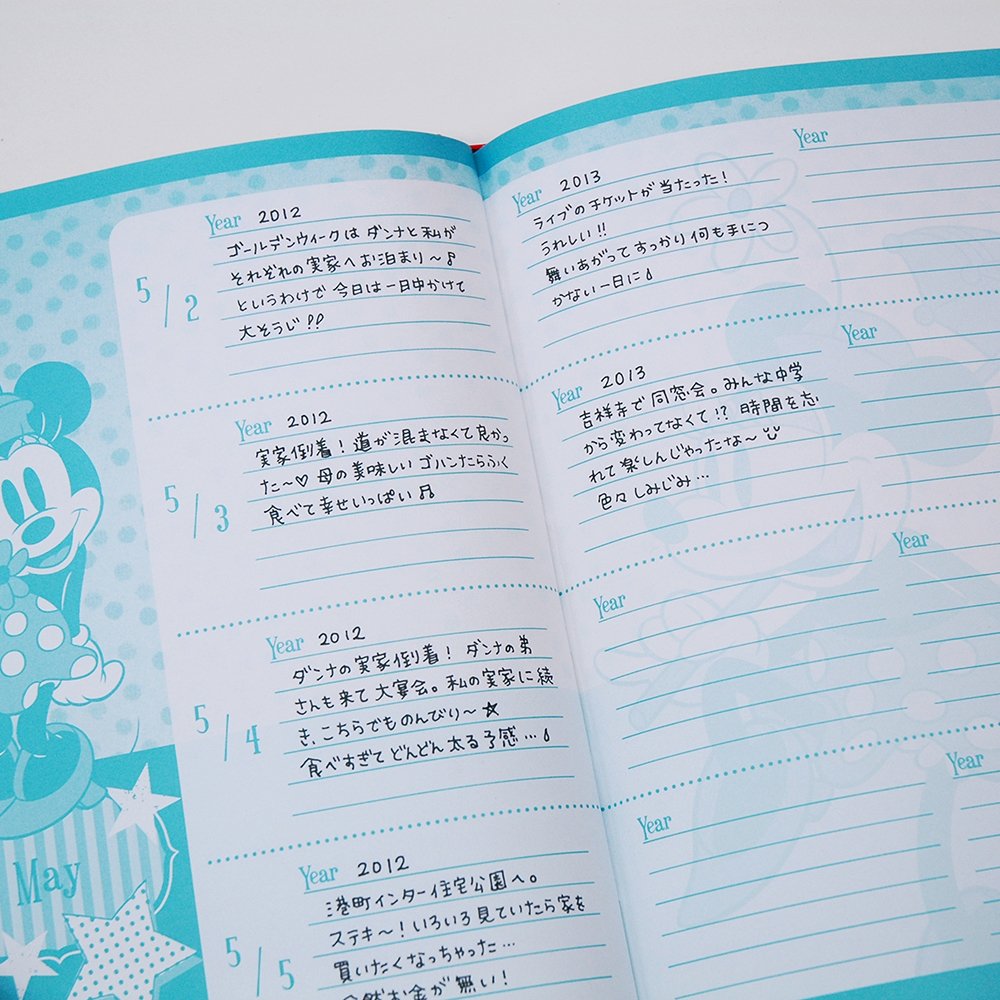 5/2
Year 2012
ゴールデンウィークは ダンナと私が
それぞれの実家へお泊まり〜♪
というわけで 今日は一日中かけて
大そうじ!!
Year 2013
ライブのチケットが当たった!
うれしい!!
舞いあがって すっかり 何も手につ
かない一日に♪
Year
5/3
Year 2012
実家到着! 道が混まなくて良かっ
た〜♡ 母の美味しい ゴハンたらふく
食べて幸せいっぱい♫
Year 2013
吉祥寺で同窓会。みんな中学
から変わってなくて!? 時間を忘
れて楽しんじゃったな〜
色々しみじみ…
Year
5/4
Year 2012
ダンナの実家到着! ダンナの弟
さんも来て大宴会。私の実家に続
き、こちらでものんびり〜☆
食べすぎて どんどん 太る予感…♪
Year
Year
5/5
Year 2012
港町インター住宅公園へ。
ステキ〜! いろいろ見ていたら家を
買いたくなっちゃった…
全然お金が無い!
Year
Year
May